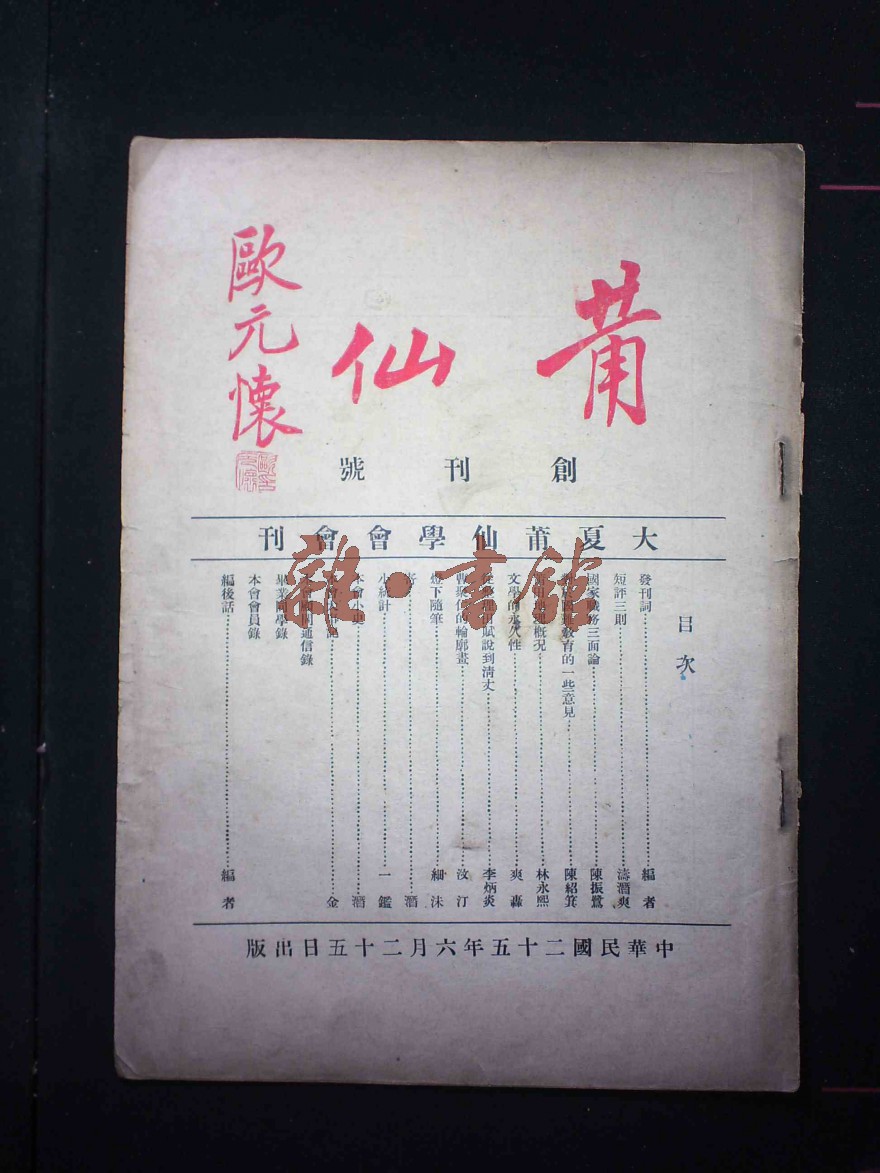 莆仙
歐元懷
創刊號
大夏莆仙學會會刊
目次
發刊詞……編者
短評三則……濤潛爽
國家職務三面論……陳振鷺
教育的一些意見……陳紹箕
概況……林永熙
文學的永久性……爽轟
賦說到清丈……李炳炎
的輪廓畫……汝汀
燈下隨筆……細沫
……潛
小統計……一鑑
本會小史……潛
……金
通信錄
畢業同學錄
本會會員錄
編後話……編者
中華民國二十五年六月二十五日出版
雜·書館